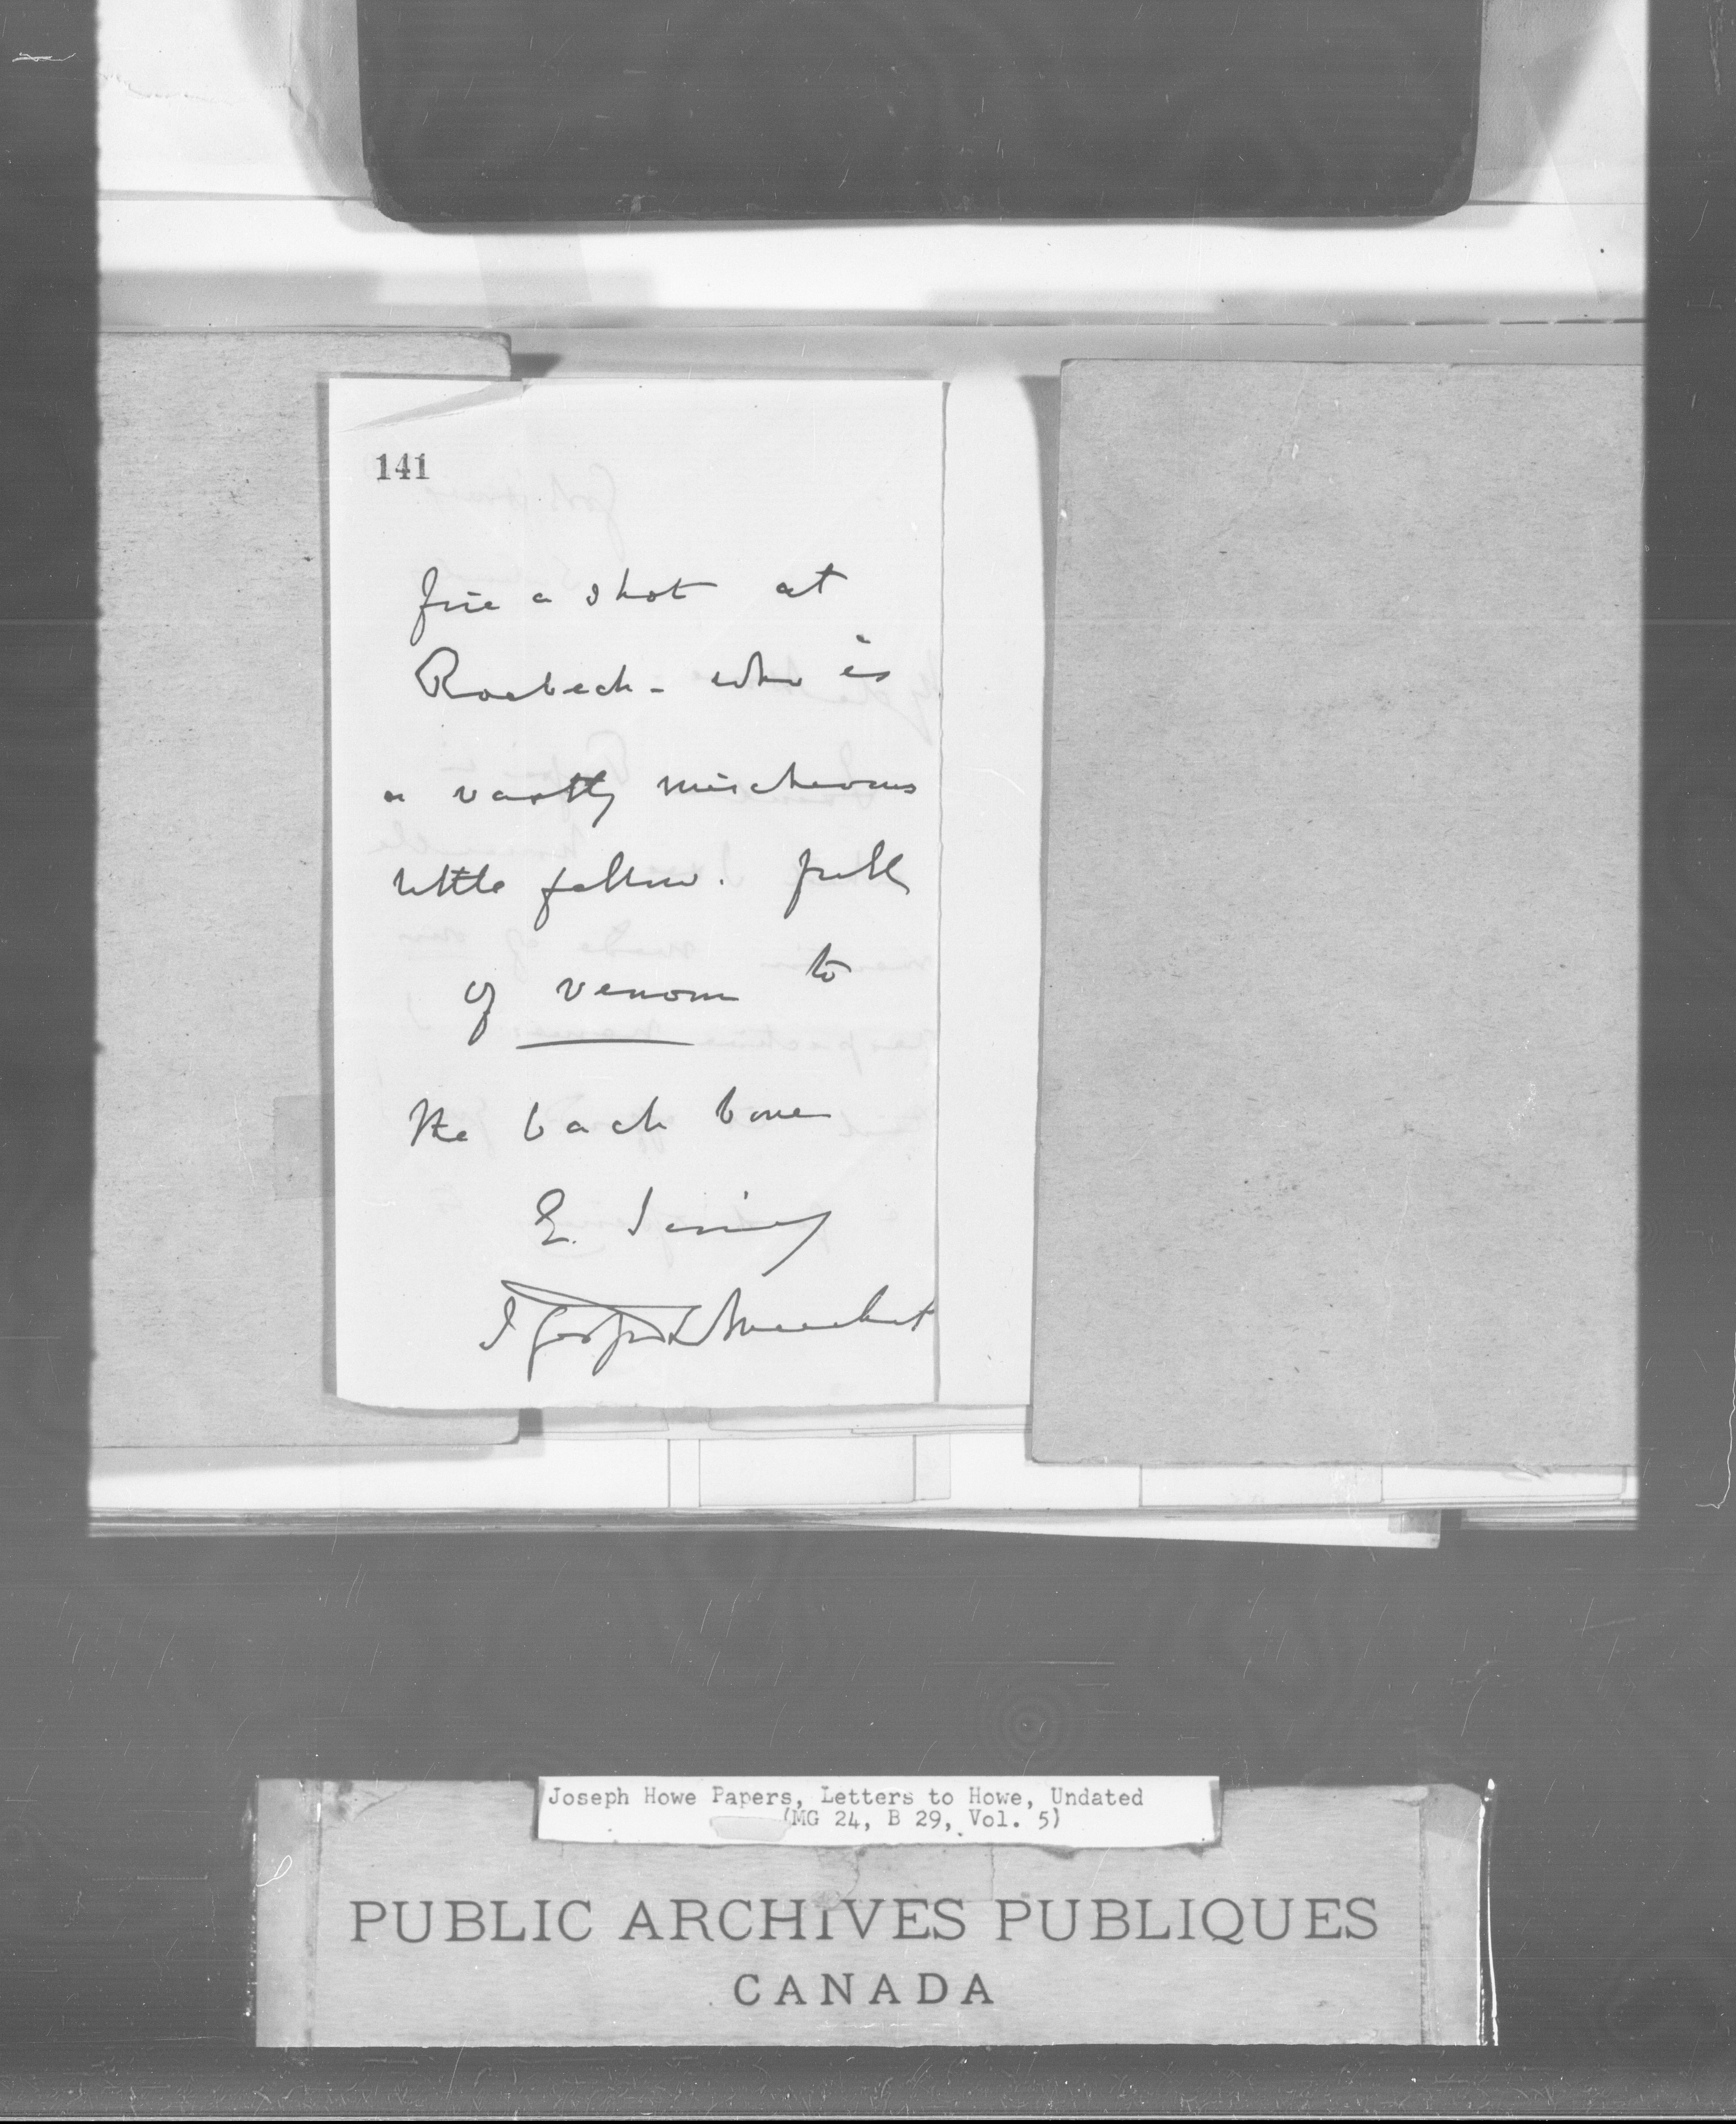 141
fire a shot at
Roebeck - who is
a vastly mischevous
little fellow. full
of venom to
the back bone
E.
Joseph Howe Papers, Letters to Howe, Undated
(MG 24, B 29, Vol. 5)
PUBLIC ARCHIVES PUBLIQUES
CANADA